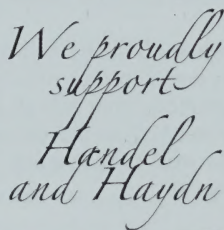 We proudly
support
Handel
and Haydn